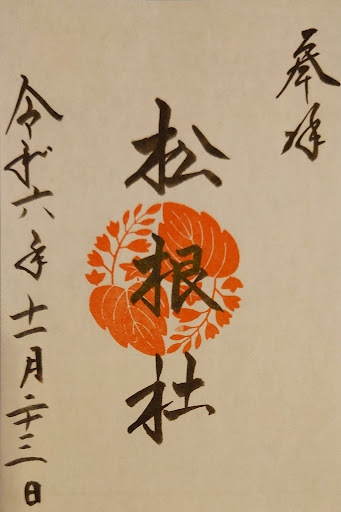 奉拝
松根社
令和六年十一月二十三日